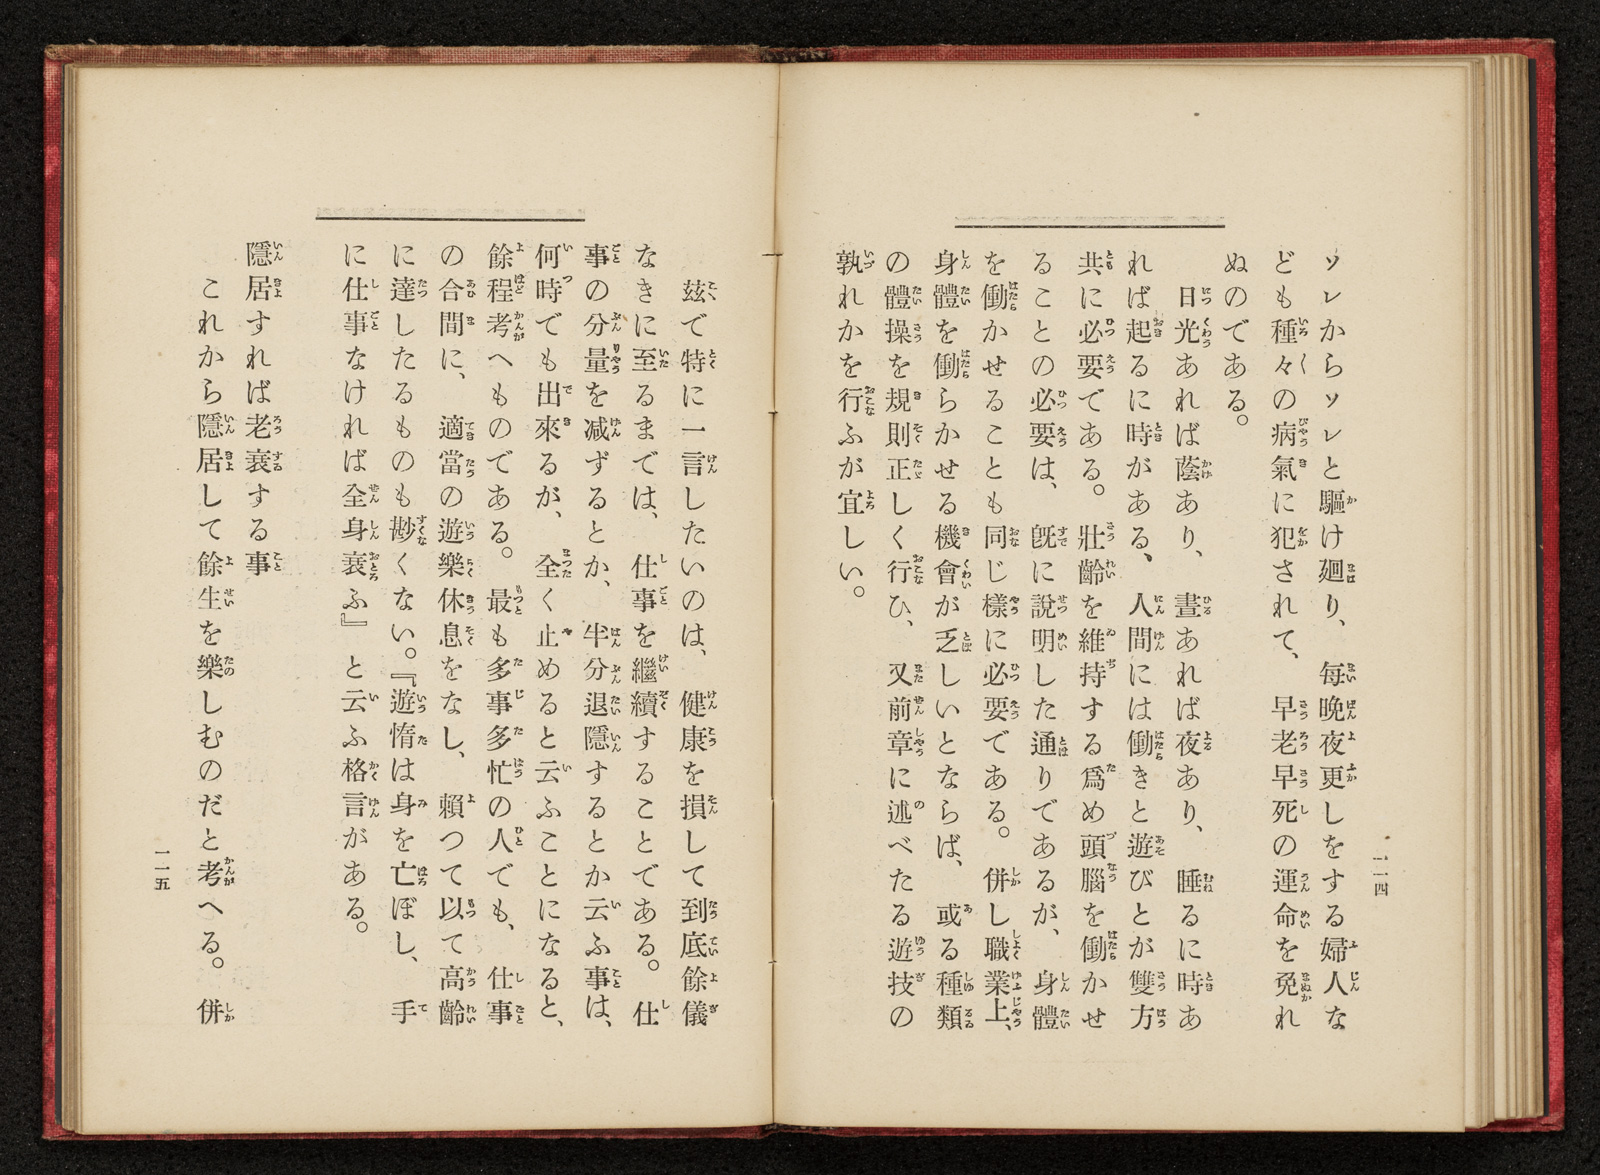 ソレからソレと驅け廻り、每晩夜更しをする婦人な
ども種々の病氣に犯されて、早老早死の運命を免れ
ぬのである。
日光あれば蔭あり、晝あれば夜あり、睡るに時あ
れば起るに時がある、人間には働きと遊びとが雙方
共に必要である。壯齡を維持する爲め頭腦を働かせ
ることの必要は、旣に說明した通りであるが、身體
を働かせることも同じ樣に必要である。併し職業上、
身體を働らかせる機會が乏しいとならば、或る種類
の體操を規則正しく行ひ、又前章に述べたる遊技の
孰れかを行ふが宜しい。
一一四
玆で特に一言したいのは、健康を損して到底餘儀
なきに至るまでは、仕事を繼續することである。仕
事の分量を減ずるとか、半分退隱するとか云ふ事は、
何時でも出來るが、全く止めると云ふことになると、
餘程考へものである。最も多事多忙の人でも、仕事
の合間に、適當の遊樂休息をなし、賴つて以て高齡
に達したるものも尠くない。『遊惰は身を亡ぼし、手
に仕事なければ全身衰ふ』と云ふ格言がある。
隱居すれば老衰する事
これから隱居して餘生を樂しむのだと考へる。併
一一五